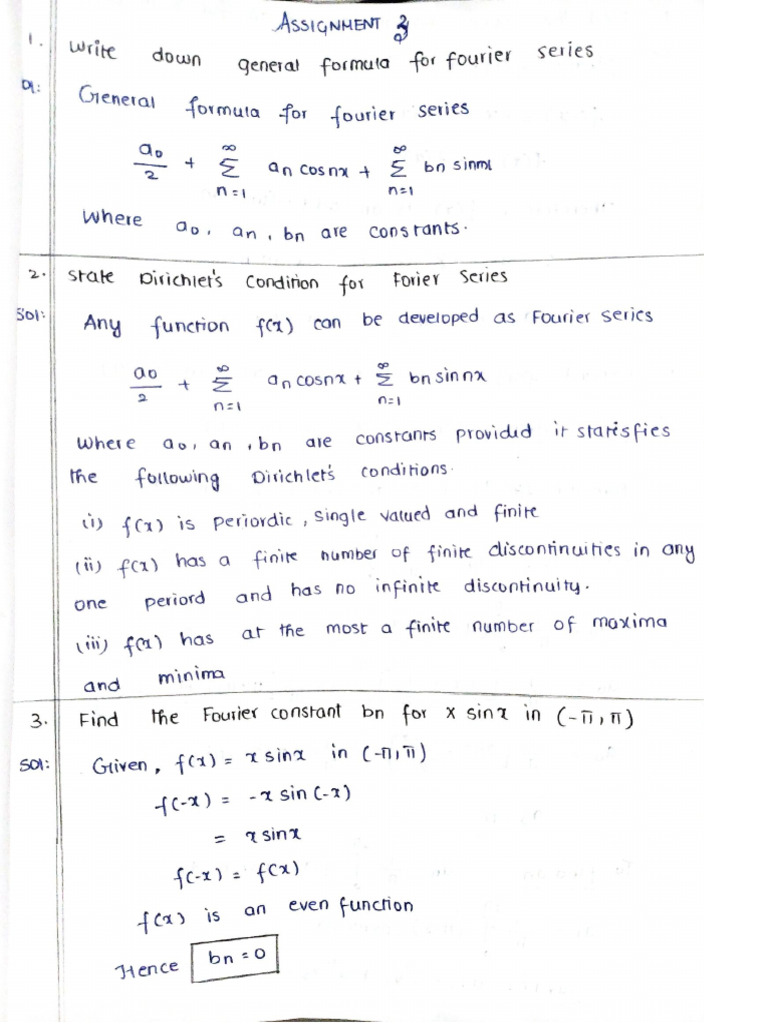 ASSIGNMENT 3
1. Write down general formula for fourier series
General formula for fourier series
a0/2 + ∞Σn=1 an cosnx + ∞Σn=1 bn sinnx
Where a0, an, bn are constants.
2. State Dirichlet's Condition for Forier Series
Sol: Any function f(x) can be developed as Fourier series
a0/2 + ∞Σn=1 an cosnx + ∞Σn=1 bn sinnx
Where a0, an, bn are constants provided it statisfies
the following Dirichlet's conditions.
(i) f(x) is periordic, single valued and finite
(ii) f(x) has a finite number of finite discontinuities in any
one periord and has no infinite discontinuity.
(iii) f(x) has at the most a finite number of maxima
and minima
3. Find the Fourier constant bn for x sinx in (-π, π)
Sol: Given, f(x) = x sinx in (-π, π)
f(-x) = -x sin(-x)
= x sinx
f(-x) = f(x)
f(x) is an even function
Hence bn = 0